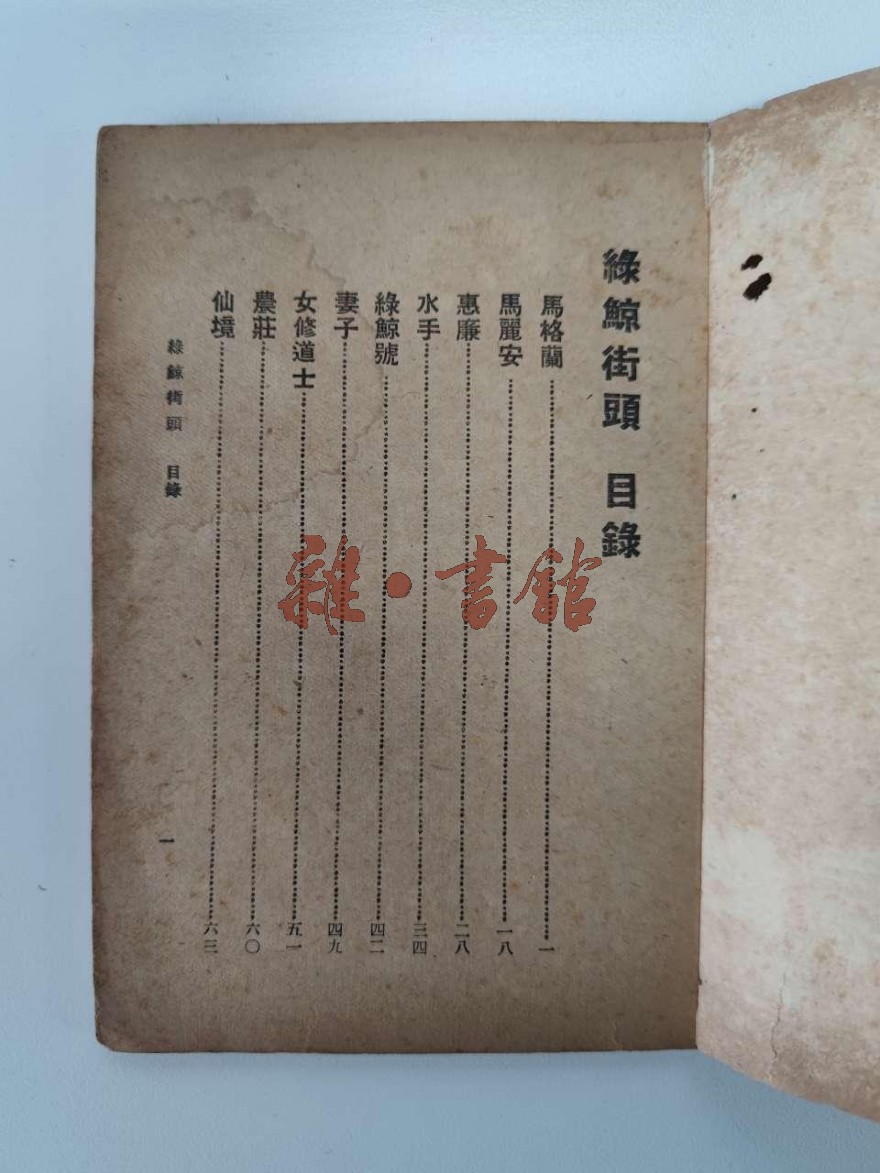 綠鯨街頭 目錄
馬格蘭 一
馬麗安 一八
惠廉 二八
水手 三四
綠鯨號 四二
妻子 四九
女修道士 五一
農莊 六〇
仙境 六三
綠鯨街頭 目錄 一
雜·書館